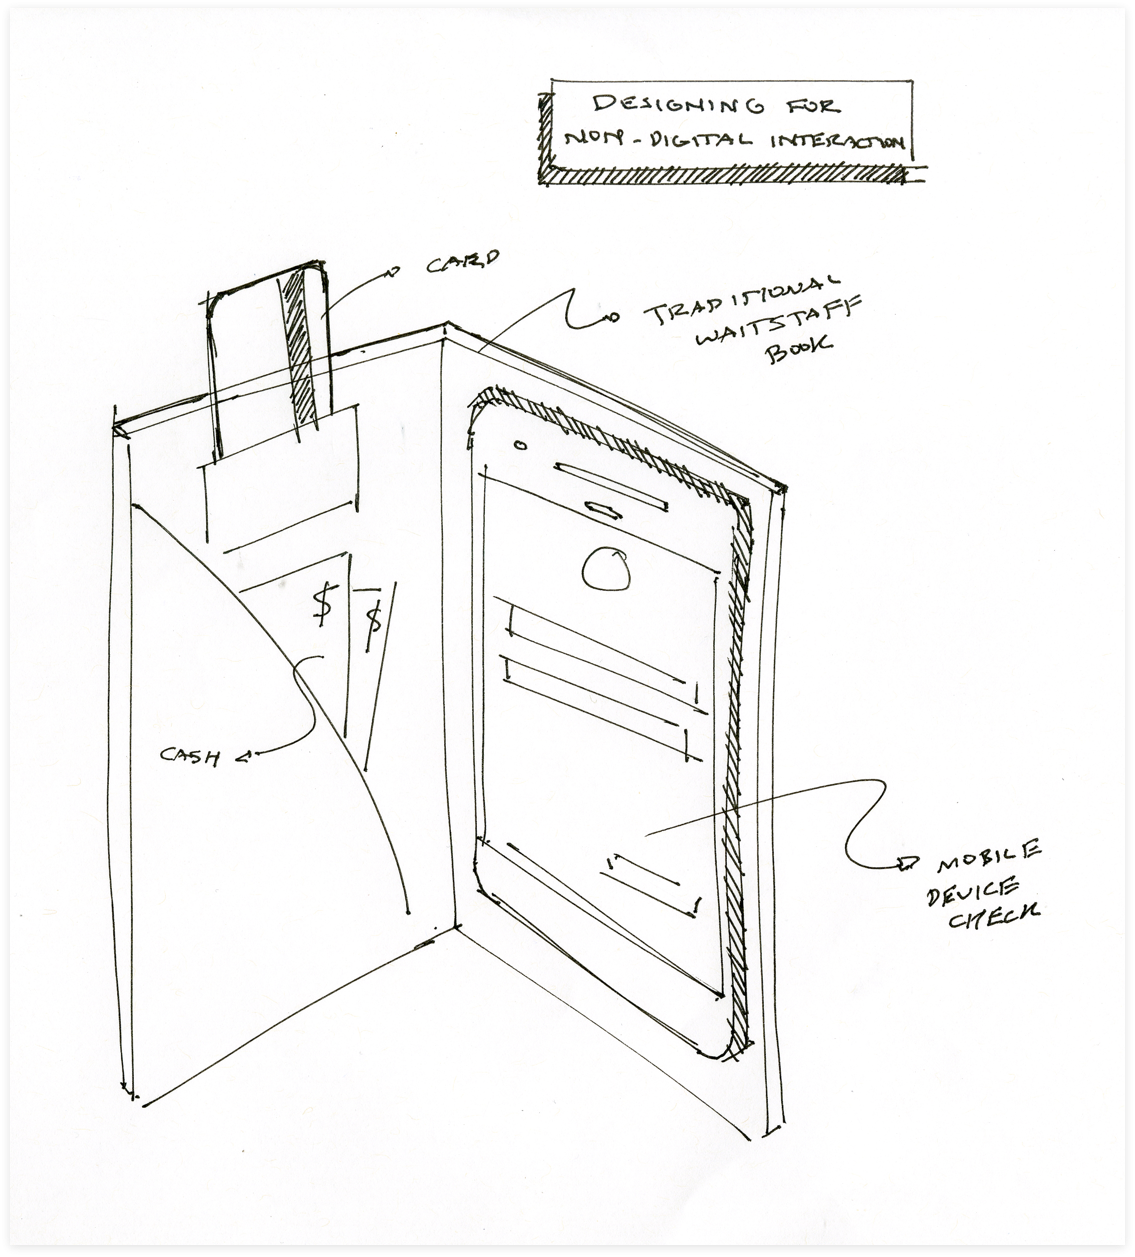 DESIGNING FOR
NON-DIGITAL INTERACTION
CARD
TRADITIONAL
WAITSTAFF
BOOK
$
$
CASH
MOBILE
DEVICE
CHECK